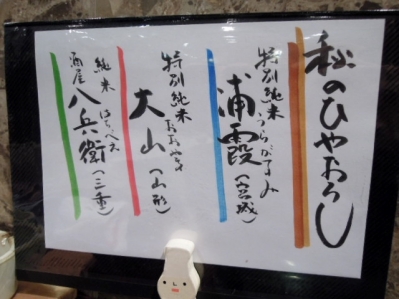 秋のひやおろし
特別純米
うらがすみ
浦霞(宮城)
特別純米
おおやま
大山(山形)
純米
はちべえ
酒屋八兵衛(三重)